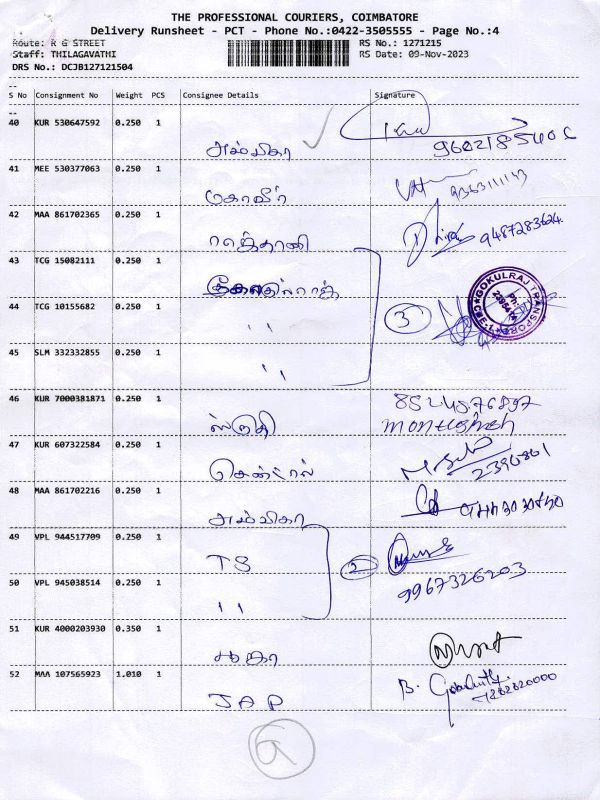 THE PROFESSIONAL COURIERS, COIMBATORE
Delivery Runsheet - PCT - Phone No.:0422-3505555 - Page No.:4
Route: R G STREET
RS No.: 1271215
Staff: THILAGAVATHI
RS Date: 09-Nov-2023
DRS No.: DCJB127121504
S No Consignment No Weight PCS Consignee Details Signature
40 KUR 530647592 0.250 1
அம்பிகா
41 MEE 530377063 0.250 1
மகாவீர்
42 MAA 861702365 0.250 1
ராஜ்தானி
9487283624
43 TCG 15082111 0.250 1
44 TCG 10155682 0.250 1
" 3
GOKULRAJ TRANSPORT
45 SLM 332332855 0.250 1
"
46 KUR 7000381871 0.250 1
ஸ்ருதி
47 KUR 607322584 0.250 1
சென்ட்ரல்
48 MAA 861702216 0.250 1
அம்பிகா
49 VPL 944517709 0.250 1
TS 2
9967326203
50 VPL 945038514 0.250 1
"
51 KUR 4000203930 0.350 1
52 MAA 107565923 1.010 1
JAP